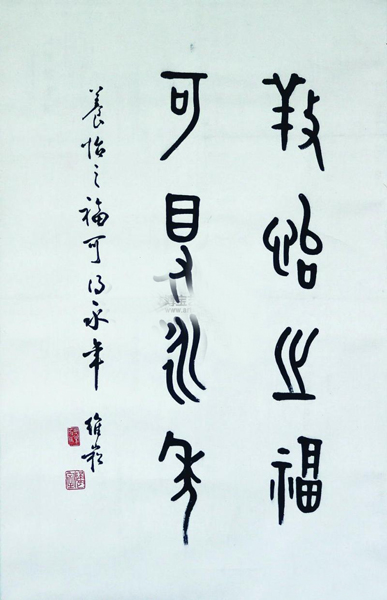 養怡之福
可得永年
養怡之福可得永年
維崧